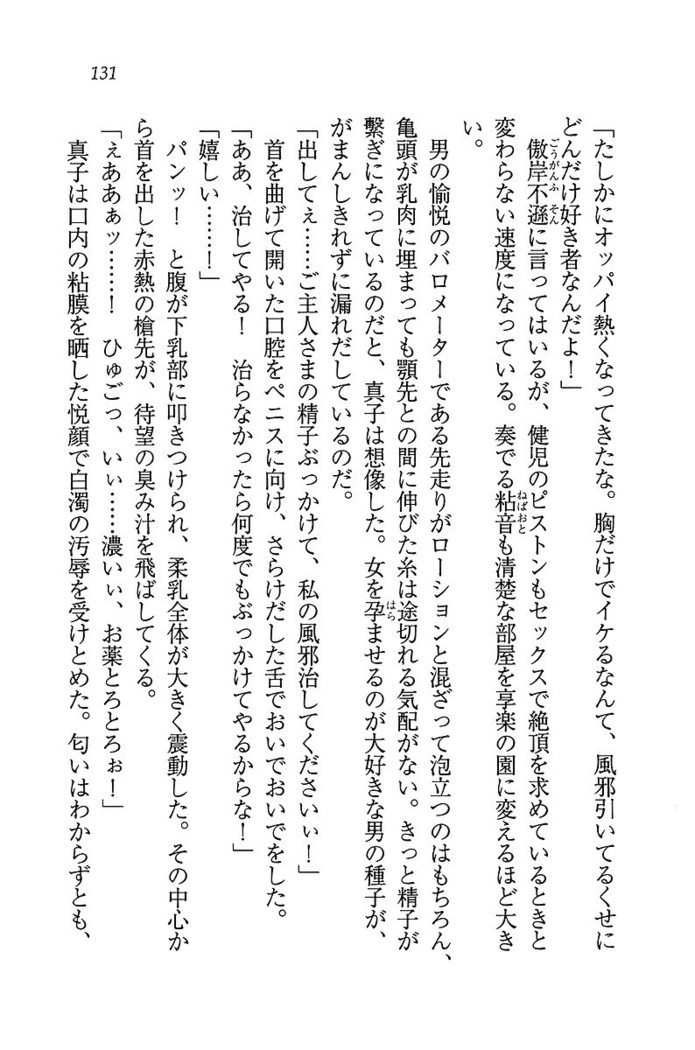 131
「たしかにオッパイ熱くなってきたな。胸だけでイケるなんて、風邪引いてるくせに
どんだけ好き者なんだよ！」
　傲岸不遜に言ってはいるが、健児のピストンもセックスで絶頂を求めているときと
変わらない速度になっている。奏でる粘音も清楚な部屋を享楽の園に変えるほど大き
い。
　男の愉悦のバロメーターである先走りがローションと混ざって泡立つのはもちろん、
亀頭が乳肉に埋まっても顎先との間に伸びた糸は途切れる気配がない。きっと精子が
繋ぎになっているのだと、真子は想像した。女を孕ませるのが大好きな男の種子が、
がまんしきれずに漏れだしているのだ。
「出してぇ……ご主人さまの精子ぶっかけて、私の風邪治してくださいぃ！」
　首を曲げて開いた口腔をペニスに向け、さらけだした舌でおいでおいでをした。
「ああ、治してやる！　治らなかったら何度でもぶっかけてやるからな！」
「嬉しい……！」
　パンッ！　と腹が下乳部に叩きつけられ、柔乳全体が大きく震動した。その中心か
ら首を出した赤熱の槍先が、待望の臭み汁を飛ばしてくる。
「ぇああぁッ……！　ひゅごっ、いぃ……濃いぃ、お薬とろとろぉ！」
　真子は口内の粘膜を晒した悦顔で白濁の汚辱を受けとめた。匂いはわからずとも、